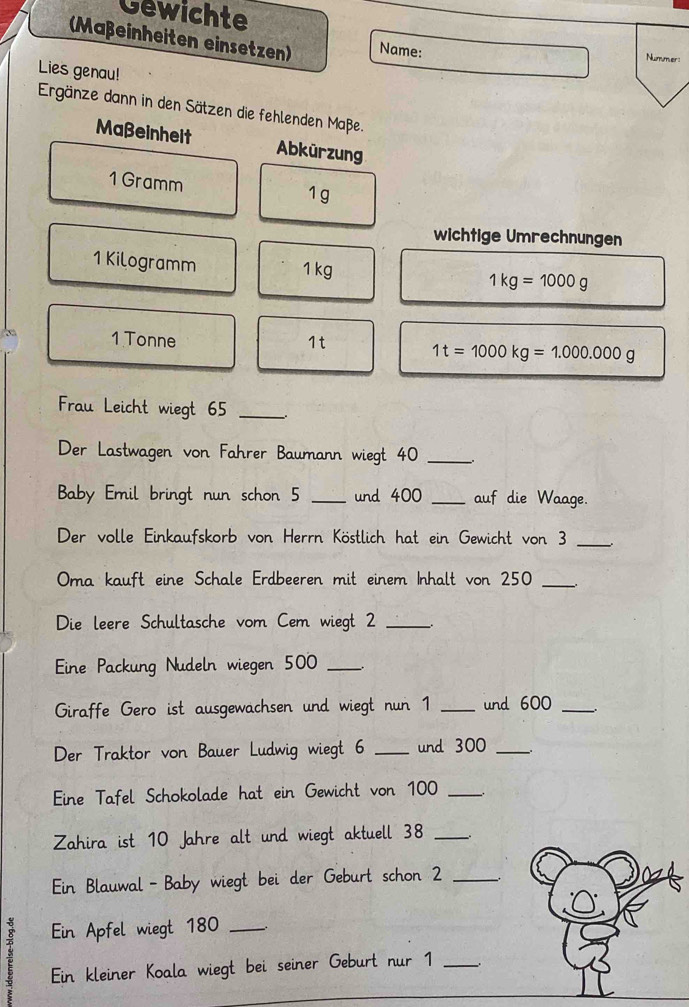 Gewichte
(Maßeinheiten einsetzen)
Name:
Nummer:
Lies genau!
Ergänze dann in den Sätzen die fehlenden Maße.
Maßeinheit
Abkürzung
1 Gramm
1 g
wichtige Umrechnungen
1 Kilogramm
1 kg
1 kg = 1000 g
1 Tonne
1 t
1 t = 1000 kg = 1.000.000 g
Frau Leicht wiegt 65 _____.
Der Lastwagen von Fahrer Baumann wiegt 40 _____.
Baby Emil bringt nun schon 5 ____ und 400 ____ auf die Waage.
Der volle Einkaufskorb von Herrn Köstlich hat ein Gewicht von 3 ____.
Oma kauft eine Schale Erdbeeren mit einem Inhalt von 250 ____.
Die leere Schultasche vom Cem wiegt 2 _____.
Eine Packung Nudeln wiegen 500 ____.
Giraffe Gero ist ausgewachsen und wiegt nun 1 ____ und 600 ____.
Der Traktor von Bauer Ludwig wiegt 6 ____ und 300 ____.
Eine Tafel Schokolade hat ein Gewicht von 100 ____.
Zahira ist 10 Jahre alt und wiegt aktuell 38 ____.
Ein Blauwal - Baby wiegt bei der Geburt schon 2 _____.
Ein Apfel wiegt 180 ____.
Ein kleiner Koala wiegt bei seiner Geburt nur 1 ____.
www.ideenreise-blog.de